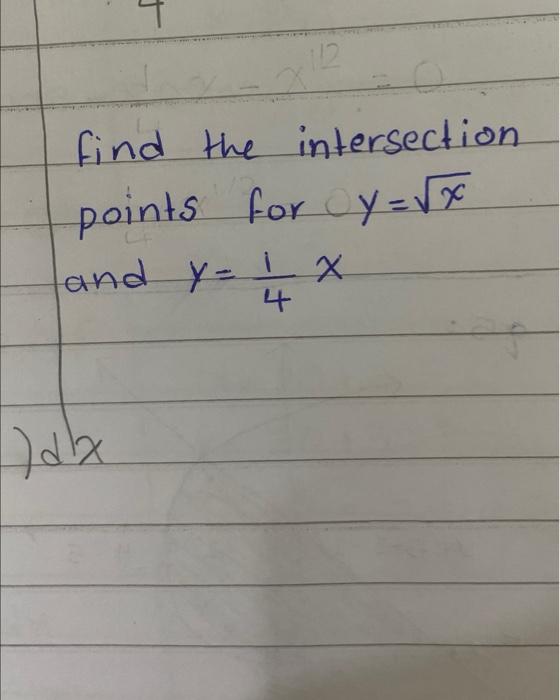 4
x - x^1/2 = 0
find the intersection
points for y=√x
and y= 1/4 x
)dx